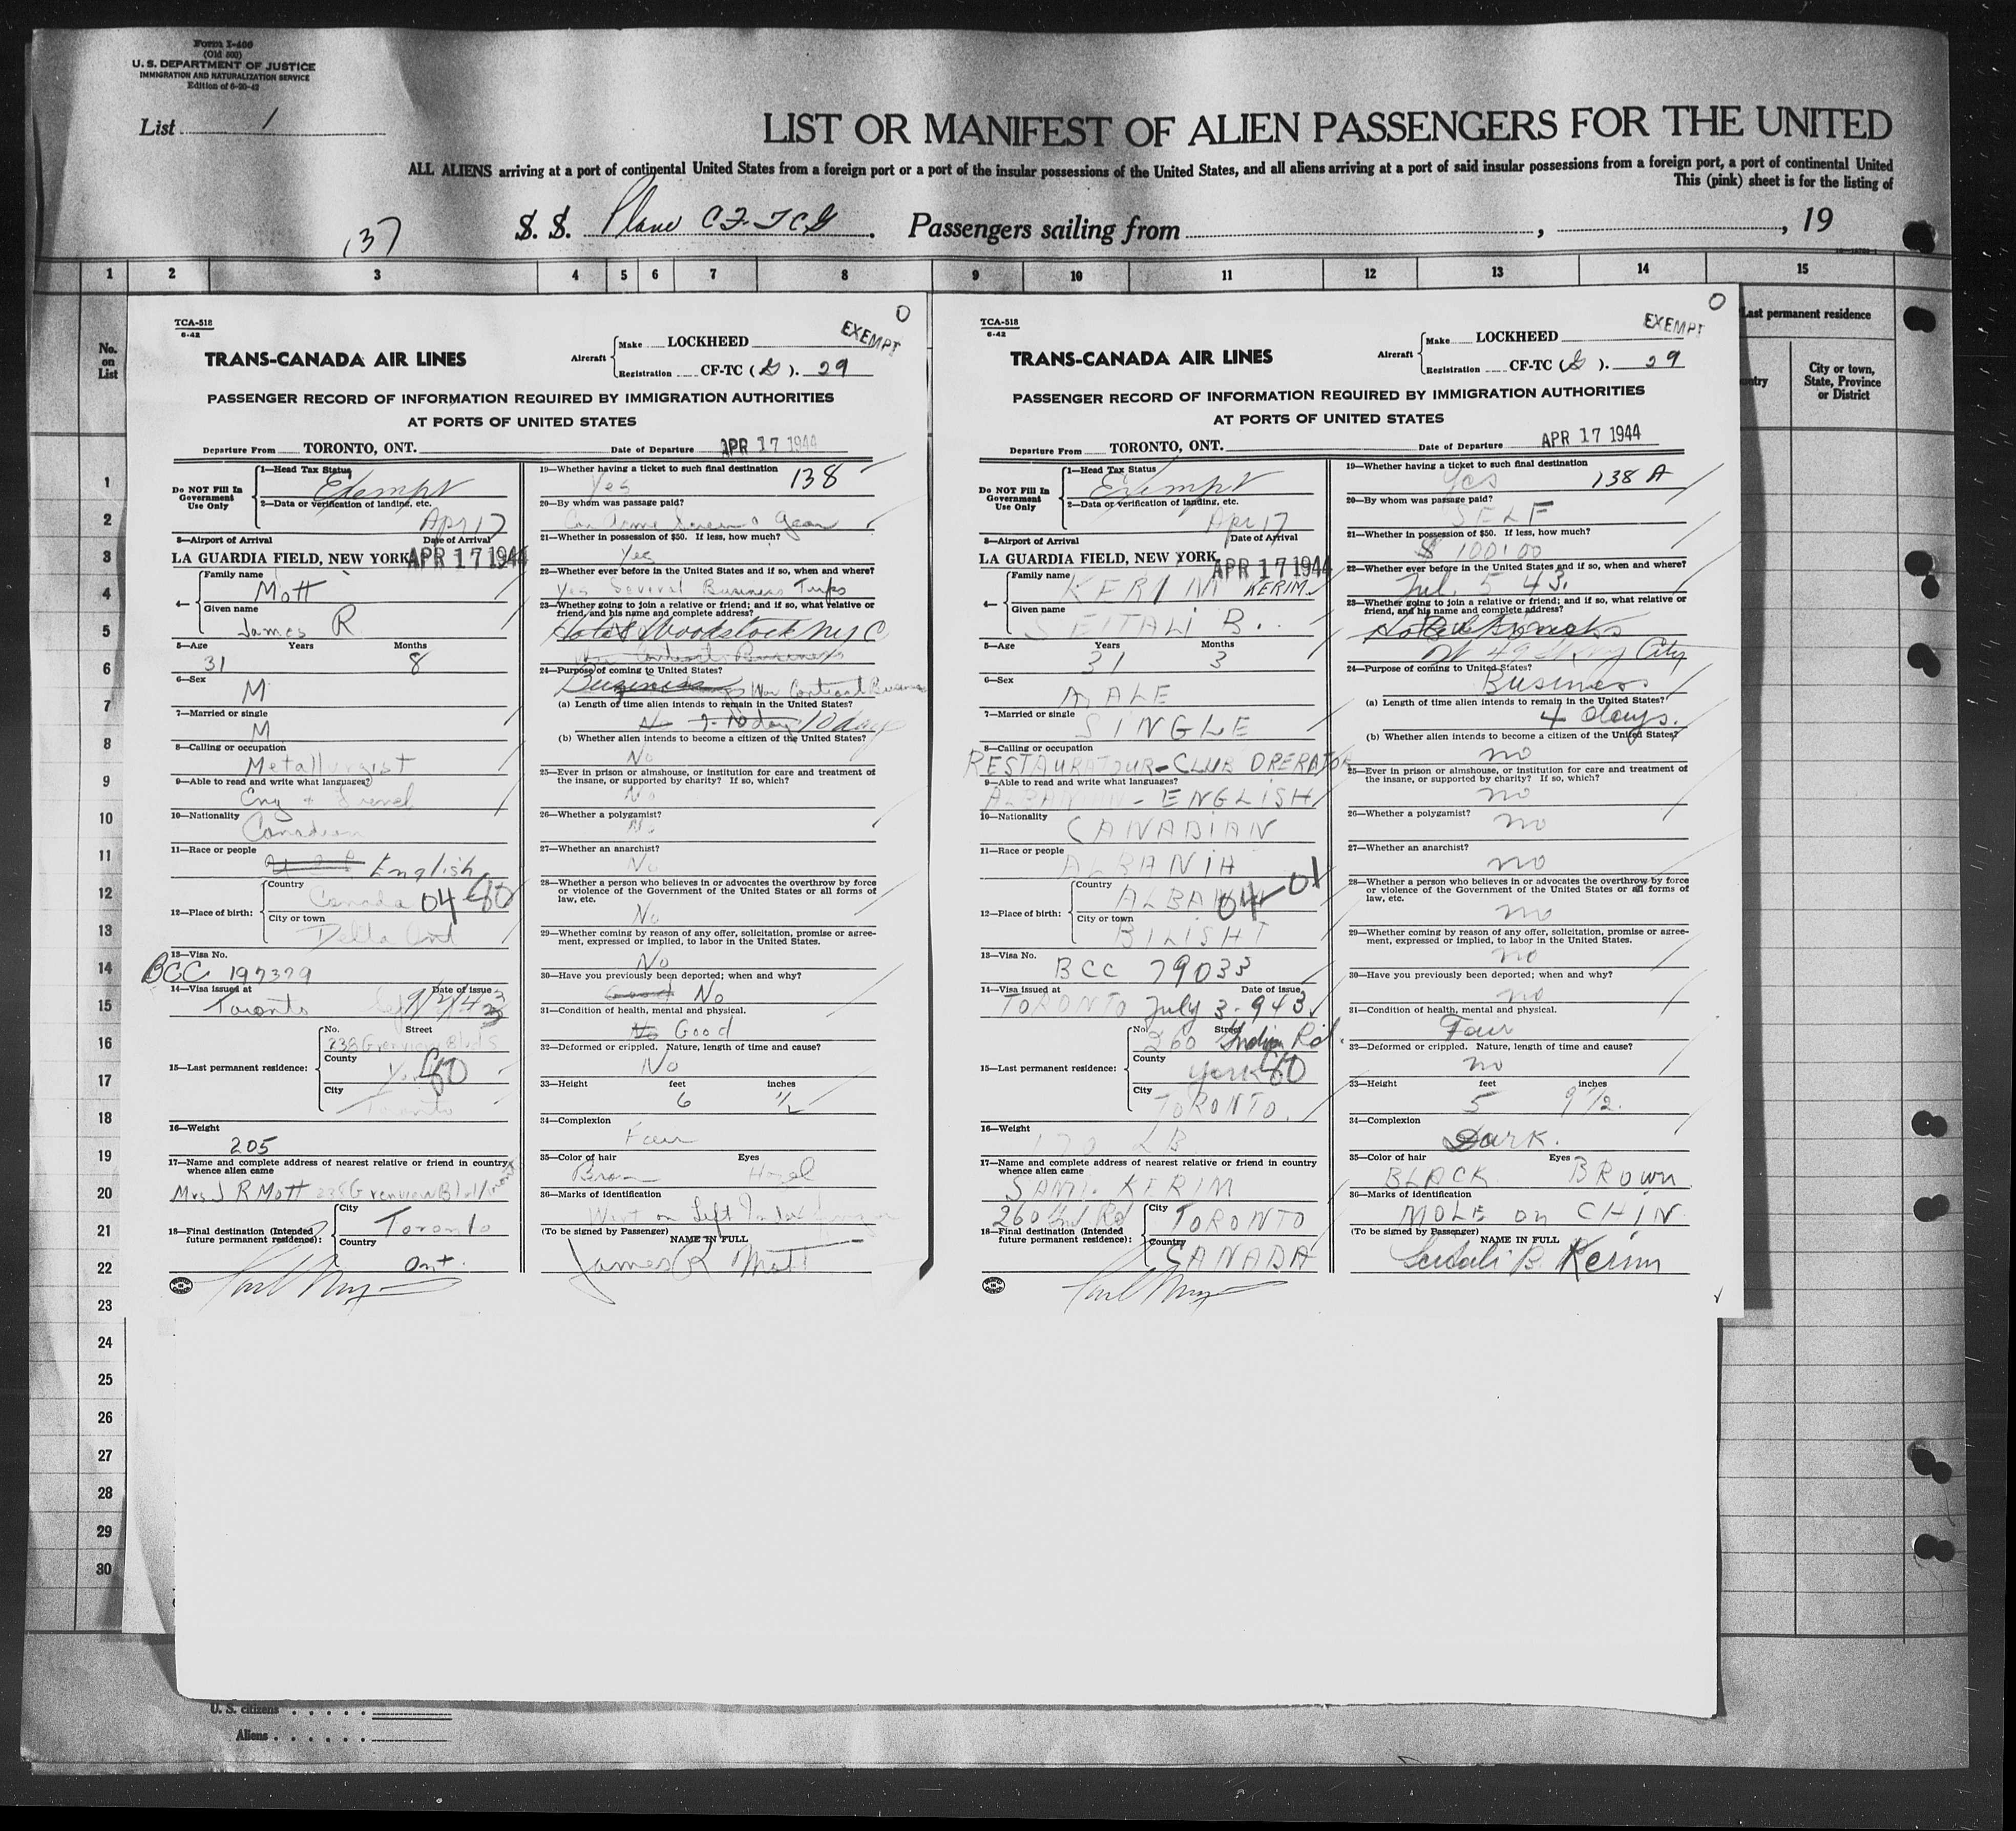 Form I-400
(Old 500)
U. S. DEPARTMENT OF JUSTICE
IMMIGRATION AND NATURALIZATION SERVICE
Edition of 6-20-42
List 1
LIST OR MANIFEST OF ALIEN PASSENGERS FOR THE UNITED
ALL ALIENS arriving at a port of continental United States from a foreign port or a port of the insular possessions of the United States, and all aliens arriving at a port of said insular possessions from a foreign port, a port of continental United
This (pink) sheet is for the listing of
(37) S. S. Plane CF-TCG. Passengers sailing from , , 19
1 2 3 4 5 6 7 8 9 10 11 12 13 14 15
No. on List
Last permanent residence
City or town, State, Province or District
1
2
3
4
5
6
7
8
9
10
11
12
13
14
15
16
17
18
19
20
21
22
23
24
25
26
27
28
29
30
TCA-518
6-42
O
EXEMPT
TRANS-CANADA AIR LINES
Aircraft
Make LOCKHEED
Registration CF-TC (G). 29
PASSENGER RECORD OF INFORMATION REQUIRED BY IMMIGRATION AUTHORITIES
AT PORTS OF UNITED STATES
Departure From TORONTO, ONT. Date of Departure APR 17 1944
Do NOT Fill In Government Use Only
1—Head Tax Status
Exempt
2—Data or verification of landing, etc.
Apr 17
3—Airport of Arrival Date of Arrival
LA GUARDIA FIELD, NEW YORK APR 17 1944
4—
Family name
Mott
Given name
James R
5—Age Years Months
31 8
6—Sex
M
7—Married or single
M
8—Calling or occupation
Metallurgist
9—Able to read and write what languages?
Eng + French
10—Nationality
Canadian
11—Race or people
English
12—Place of birth:
Country
Canada 04-60
City or town
Delta Ont
13—Visa No.
BCC 197379
14—Visa issued at Date of issue
Toronto
15—Last permanent residence:
No. Street
238 Grenview Blvd S
County
York 60
City
Toronto
16—Weight
205
17—Name and complete address of nearest relative or friend in country whence alien came
Mrs J R Mott 238 Grenview Blvd
18—Final destination (Intended future permanent residence):
City
Toronto
Country
Ont.
19—Whether having a ticket to such final destination
Yes 138
20—By whom was passage paid?
Can Acme Screw & Gear
21—Whether in possession of $50. If less, how much?
Yes
22—Whether ever before in the United States and if so, when and where?
Yes Several Business Trips
23—Whether going to join a relative or friend; and if so, what relative or friend, and his name and complete address?
Hotel Woodstock NYC
War Contracts Business
24—Purpose of coming to United States?
Business War Contract Business
(a) Length of time alien intends to remain in the United States?
10 days
(b) Whether alien intends to become a citizen of the United States?
No
25—Ever in prison or almshouse, or institution for care and treatment of the insane, or supported by charity? If so, which?
No
26—Whether a polygamist?
No
27—Whether an anarchist?
No
28—Whether a person who believes in or advocates the overthrow by force or violence of the Government of the United States or all forms of law, etc.
No
29—Whether coming by reason of any offer, solicitation, promise or agreement, expressed or implied, to labor in the United States.
No
30—Have you previously been deported; when and why?
Good No
31—Condition of health, mental and physical.
No Good
32—Deformed or crippled. Nature, length of time and cause?
No
33—Height feet inches
6 1/2
34—Complexion
Fair
35—Color of hair Eyes
Brown Hazel
36—Marks of identification
Wart on Left Index finger
(To be signed by Passenger) NAME IN FULL
James R Mott
TCA-518
6-42
O
EXEMPT
TRANS-CANADA AIR LINES
Aircraft
Make LOCKHEED
Registration CF-TC (G). 29
PASSENGER RECORD OF INFORMATION REQUIRED BY IMMIGRATION AUTHORITIES
AT PORTS OF UNITED STATES
Departure From TORONTO, ONT. Date of Departure APR 17 1944
Do NOT Fill In Government Use Only
1—Head Tax Status
Exempt
2—Data or verification of landing, etc.
Apr 17
3—Airport of Arrival Date of Arrival
LA GUARDIA FIELD, NEW YORK APR 17 1944
4—
Family name
KERIM KERIM
Given name
SEITALI B.
5—Age Years Months
31 3
6—Sex
MALE
7—Married or single
SINGLE
8—Calling or occupation
RESTAURATOUR-CLUB OPERATOR
9—Able to read and write what languages?
ALBANIAN - ENGLISH
10—Nationality
CANADIAN
11—Race or people
ALBANIA
12—Place of birth:
Country
ALBANIA 04-01
City or town
BILISHT
13—Visa No.
BCC 79033
14—Visa issued at Date of issue
TORONTO July 3-943
15—Last permanent residence:
No. Street
260 Indian Rd.
County
York 60
City
TORONTO.
16—Weight
170 LB
17—Name and complete address of nearest relative or friend in country whence alien came
SAMI. KERIM
260 Ind Rd
18—Final destination (Intended future permanent residence):
City
TORONTO
Country
CANADA
19—Whether having a ticket to such final destination
Yes 138 A
20—By whom was passage paid?
SELF
21—Whether in possession of $50. If less, how much?
$ 100.00
22—Whether ever before in the United States and if so, when and where?
Jul. 5 43.
23—Whether going to join a relative or friend; and if so, what relative or friend, and his name and complete address?
Hotel
W 49 St NY City
24—Purpose of coming to United States?
Business
(a) Length of time alien intends to remain in the United States?
4 days.
(b) Whether alien intends to become a citizen of the United States?
no
25—Ever in prison or almshouse, or institution for care and treatment of the insane, or supported by charity? If so, which?
no
26—Whether a polygamist?
no
27—Whether an anarchist?
no
28—Whether a person who believes in or advocates the overthrow by force or violence of the Government of the United States or all forms of law, etc.
no
29—Whether coming by reason of any offer, solicitation, promise or agreement, expressed or implied, to labor in the United States.
no
30—Have you previously been deported; when and why?
no
31—Condition of health, mental and physical.
Fair
32—Deformed or crippled. Nature, length of time and cause?
no
33—Height feet inches
5 9 1/2.
34—Complexion
Dark.
35—Color of hair Eyes
BLACK BROWN
36—Marks of identification
MOLE on CHIN
(To be signed by Passenger) NAME IN FULL
Seitali B Kerim
U. S. citizens
Aliens